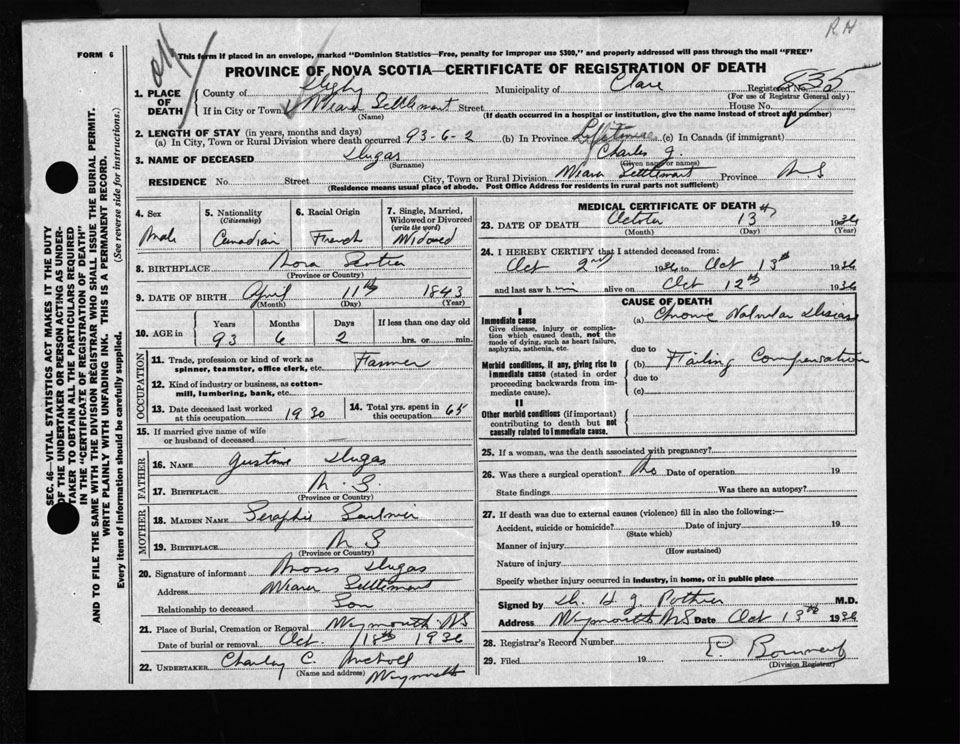 FORM 6
This form if placed in an envelope, marked "Dominion Statistics—Free, penalty for improper use $300," and properly addressed will pass through the mail "FREE"
R.H
PROVINCE OF NOVA SCOTIA—CERTIFICATE OF REGISTRATION OF DEATH
1. PLACE OF DEATH
County of Digby Municipality of Clare Registered No. 835
(For use of Registrar General only)
If in City or Town Settlement Street House No.
(Name) (If death occurred in a hospital or institution, give the name instead of street and number)
2. LENGTH OF STAY (in years, months and days)
(a) In City, Town or Rural Division where death occurred 93-6-2 (b) In Province Lifetime (c) In Canada (if immigrant)
3. NAME OF DECEASED Dugas Charles J.
(Surname) (Given name or names)
RESIDENCE No. Street City, Town or Rural Division Settlement Province N S
(Residence means usual place of abode. Post Office Address for residents in rural parts not sufficient)
4. Sex Male
5. Nationality (Citizenship) Canadian
6. Racial Origin French
7. Single, Married, Widowed or Divorced (write the word) Widowed
8. BIRTHPLACE Nova Scotia
(Province or Country)
9. DATE OF BIRTH April 11th 1843
(Month) (Day) (Year)
10. AGE in Years Months Days If less than one day old
93 6 2 hrs. or min.
OCCUPATION
11. Trade, profession or kind of work as spinner, teamster, office clerk, etc. Farmer
12. Kind of industry or business, as cotton-mill, lumbering, bank, etc.
13. Date deceased last worked at this occupation 1930
14. Total yrs. spent in this occupation 65
15. If married give name of wife or husband of deceased —
FATHER
16. NAME Dugas
17. BIRTHPLACE N. S.
(Province or Country)
MOTHER
18. MAIDEN NAME Seraphie Saulnier
19. BIRTHPLACE N S
(Province or Country)
20. Signature of informant Moses Dugas
Address Settlement
Relationship to deceased Son
21. Place of Burial, Cremation or Removal Weymouth NS
Date of burial or removal Oct 18th 1936
22. UNDERTAKER Charley C.
(Name and address) Weymouth
MEDICAL CERTIFICATE OF DEATH
23. DATE OF DEATH October 13th 1936
(Month) (Day) (Year)
24. I HEREBY CERTIFY that I attended deceased from:
Oct 2nd 1936 to Oct 13th 1936
and last saw him alive on Oct 12th 1936
CAUSE OF DEATH
I
Immediate cause
Give disease, injury or complication which caused death, not the mode of dying, such as heart failure, asphyxia, asthenia, etc.
(a) Chronic Valvular Disease
due to
Morbid conditions, if any, giving rise to immediate cause (stated in order proceeding backwards from immediate cause).
(b) Failing Compensation
due to
(c)
II
Other morbid conditions (if important) contributing to death but not causally related to immediate cause.
25. If a woman, was the death associated with pregnancy?
26. Was there a surgical operation? No Date of operation 19
State findings Was there an autopsy?
27. If death was due to external causes (violence) fill in also the following:—
Accident, suicide or homicide? Date of injury 19
(State which)
Manner of injury
(How sustained)
Nature of injury
Specify whether injury occurred in industry, in home, or in public place
Signed by Dr. H J Pothier M.D.
Address Weymouth NS Date Oct 13th 1936
28. Registrar's Record Number
29. Filed 19
(Division Registrar)
SEC. 46—VITAL STATISTICS ACT MAKES IT THE DUTY
OF THE UNDERTAKER OR PERSON ACTING AS UNDER-
TAKER TO OBTAIN ALL THE PARTICULARS REQUIRED
IN THE "CERTIFICATE OF REGISTRATION OF DEATH"
AND TO FILE THE SAME WITH THE DIVISION REGISTRAR WHO SHALL ISSUE THE BURIAL PERMIT.
WRITE PLAINLY WITH UNFADING INK. THIS IS A PERMANENT RECORD.
Every item of information should be carefully supplied. (See reverse side for instructions.)